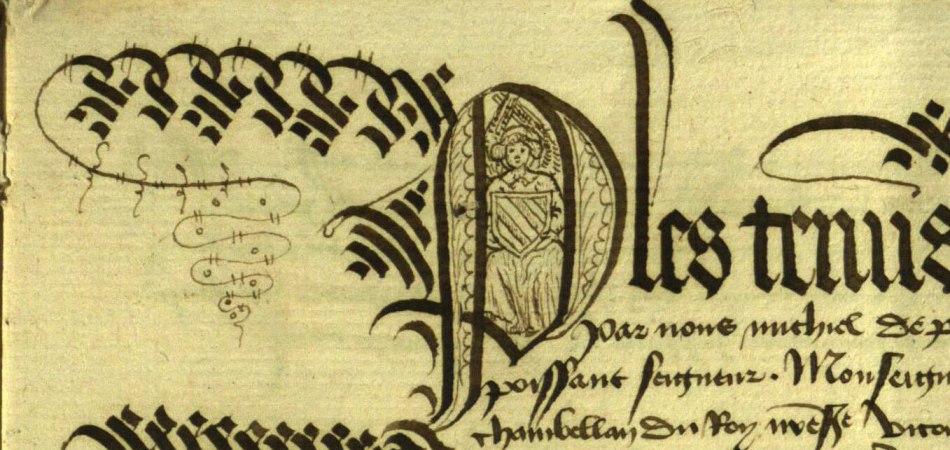 Ples tenus
Par nous michiel de
poissant seigneur. Monseign
chambellan du Roy nre